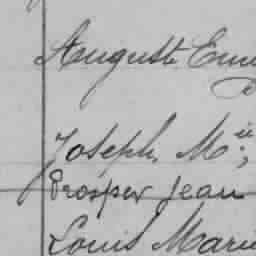 Auguste Em
Joseph, M
Prosper Jean
Louis Marie